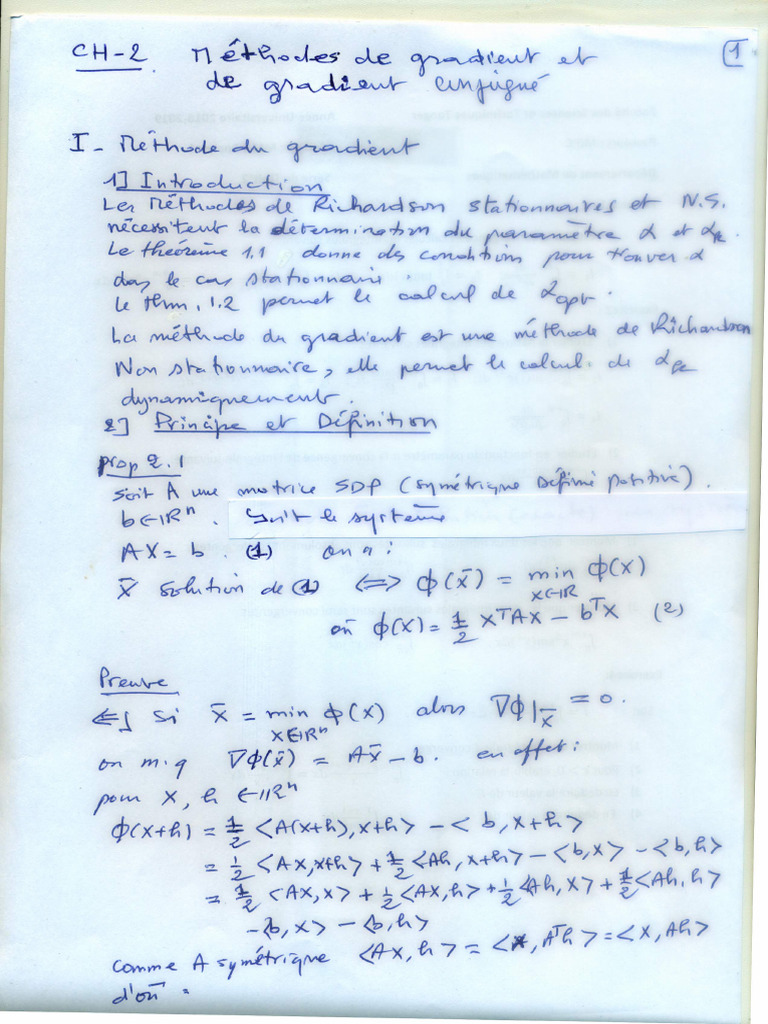 CH-2 Méthodes de gradient et
de gradient conjugué
1
I - Méthode du gradient
1] Introduction
Les Méthodes de Richardson stationnaires et N.S.
nécessitent la détermination du paramètre α et αk.
Le théorème 1.1 donne des conditions pour trouver α
dans le cas stationnaire.
le thm. 1.2 permet le calcul de αopt.
La méthode du gradient est une méthode de Richardson
Non stationnaire, elle permet le calcul de αk
dynamiquement.
2] Principe et Définition
prop 2.1
Soit A une matrice SDP (symétrique Définie positive).
b ∈ IRⁿ. Soit le système
AX = b. (1) on a :
X̄ solution de (1) ⟺ ϕ(X̄) = min ϕ(X)
X∈IR
où ϕ(X) = 1/2 XᵀAX − bᵀX (2)
Preuve
⇐] Si X̄ = min ϕ(X) alors ∇ϕ|X̄ = 0.
X∈IRⁿ
on m.q ∇ϕ(X̄) = AX̄ − b. en effet :
pour X, h ∈ IRⁿ
ϕ(X+h) = 1/2 <A(X+h), X+h> − <b, X+h>
= 1/2 <AX, X+h> + 1/2 <Ah, X+h> − <b, X> − <b, h>
= 1/2 <AX, X> + 1/2 <AX, h> + 1/2 <Ah, X> + 1/2 <Ah, h>
− <b, X> − <b, h>
comme A symétrique <AX, h> = <X, Aᵀh> = <X, Ah>
d'où :